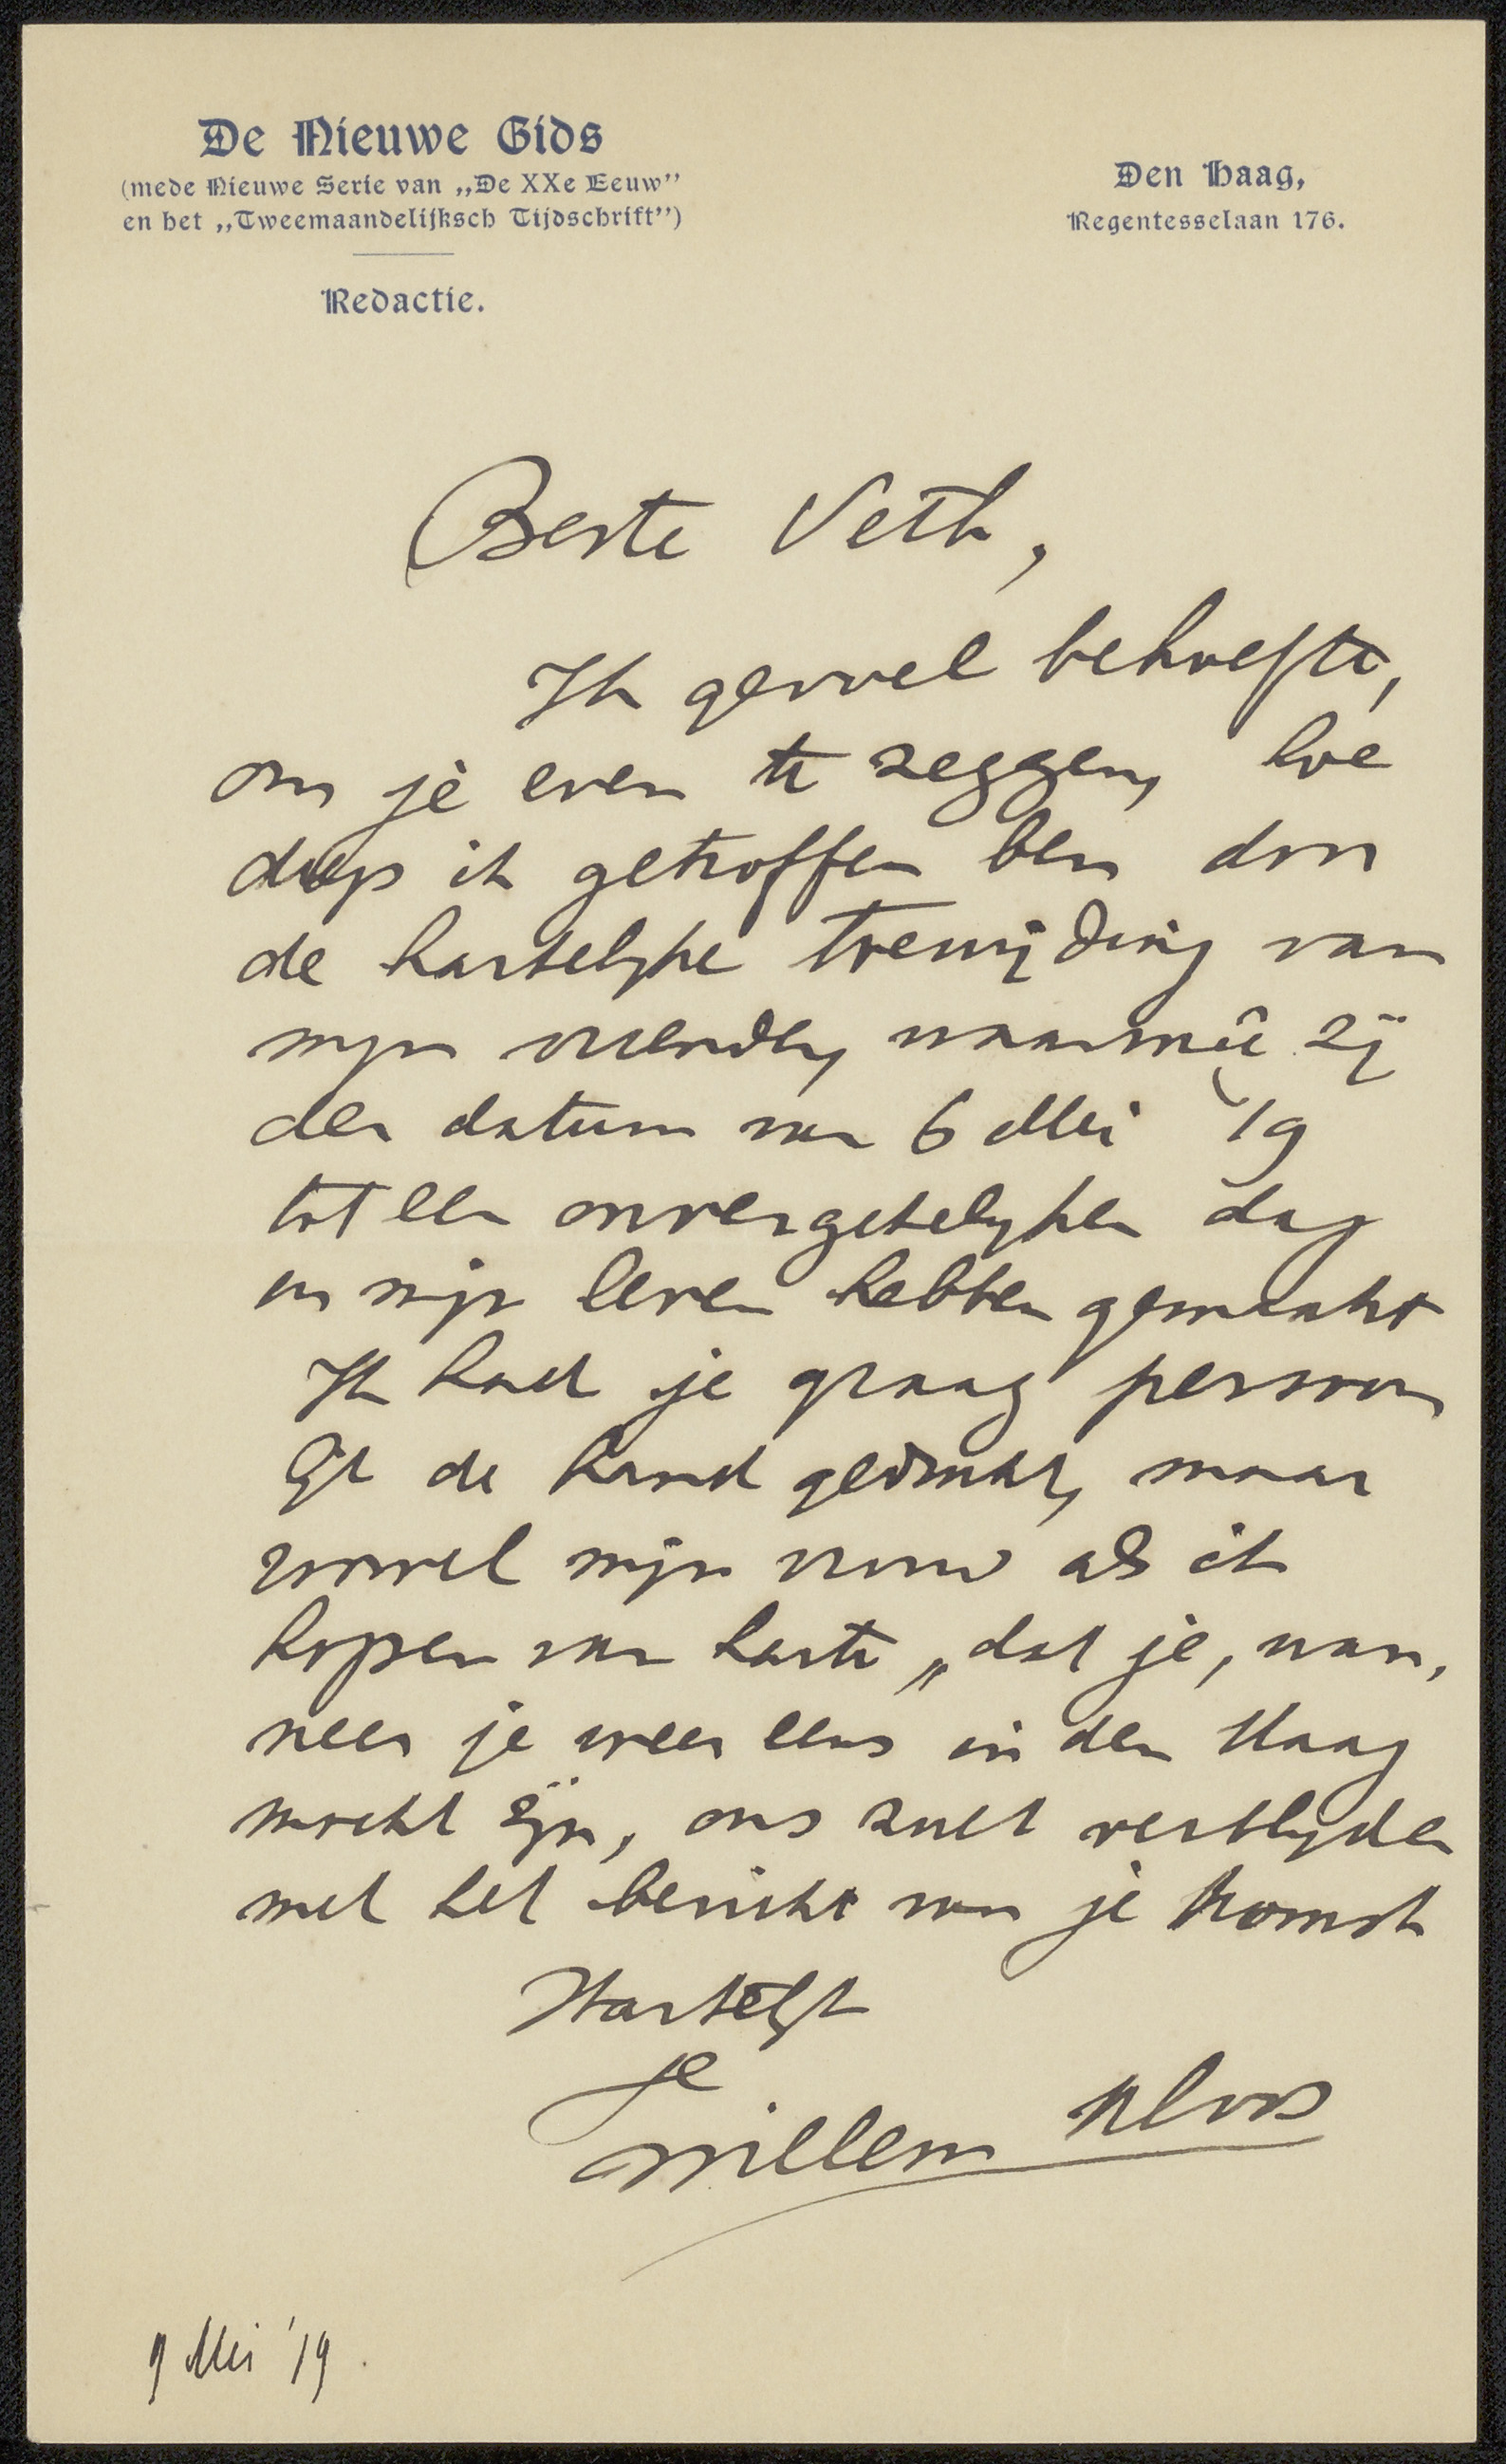 De Nieuwe Gids
(mede Nieuwe Serie van „De XXe Eeuw”
en het „Tweemaandelijksch Tijdschrift”)
Redactie.
Den Haag,
Regentesselaan 176.
Beste Veth,
Ik gevoel behoefte,
om je even te zeggen, hoe
diep ik getroffen ben door
de hartelyke toewijding van
myn vrienden, waarmeê zij
den datum van 6 Mei '19
tot een onvergetelyken dag
in mijn leven hebben gemaakt
Ik had je graag persoon
lijk de hand gedrukt, maar
zoowel mijn vrouw als ik
hopen van harte „dat je, wan,
neer je weer eens in den Haag
mocht zijn, ons zult verblyden
met het bericht van je komst
Hartelijk
je
Willem Kloos
9 Mei '19.